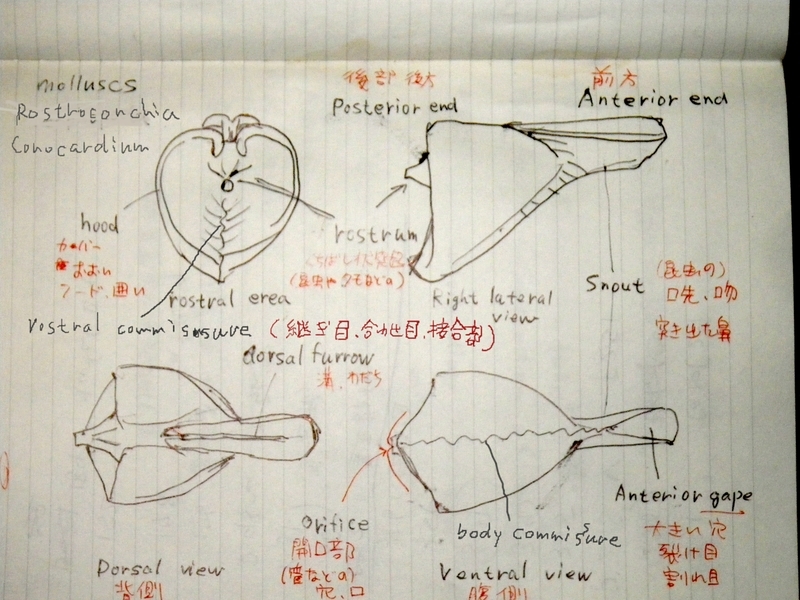 molluscs
Rostroconchia
Conocardium
後部 後方
Posterior end
前方
Anterior end
hood
カバー
おおい
フード、囲い
rostrum
くちばし状突起
(昆虫やクモなどの)
rostral erea
Right lateral
view
Snout
(昆虫の)
口先、吻
突き出た鼻
rostral commissure (継ぎ目、合わせ目、接合部)
dorsal furrow
溝、わだち
Orifice
開口部
(管などの)
穴、口
body commisure
Anterior gape
大きい穴
裂け目
割れ目
Dorsal view
背側
Ventral view
腹側